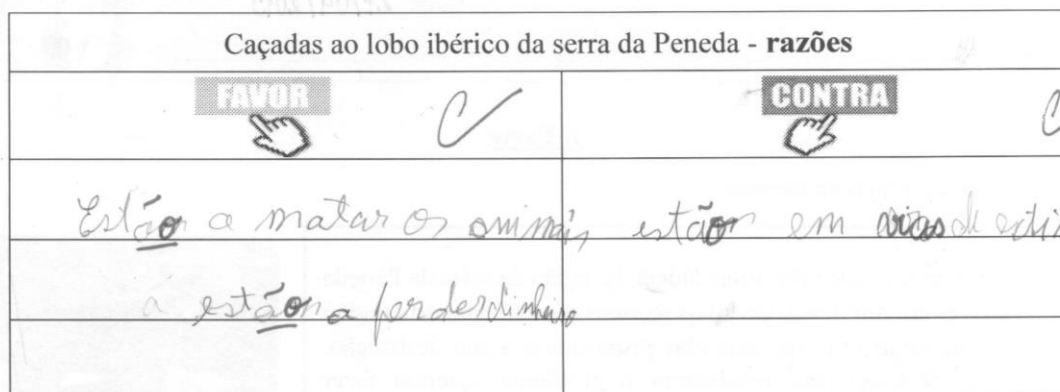 Caçadas ao lobo ibérico da serra da Peneda - razões
FAVOR C CONTRA C
Estão a matar os animais estão em vias de exti
a estão a perder dinheiro